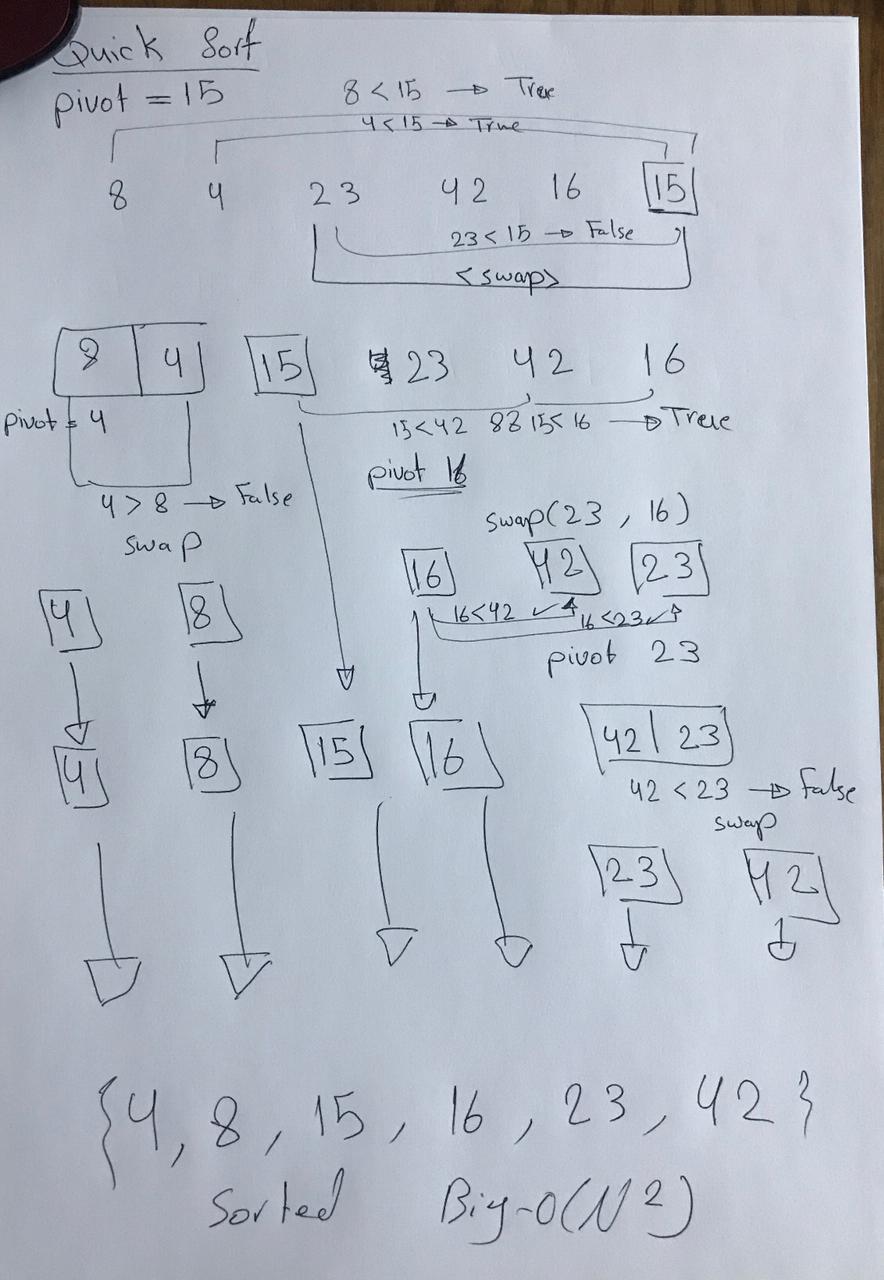 Quick Sort
pivot = 15
8 < 15 → True
4 < 15 → True
8 4 23 42 16 15
23 < 15 → False
<swap>
8 4 15 23 42 16
pivot = 4
15 < 42 && 15 < 16 → True
pivot 16
4 > 8 → False
swap
swap(23 , 16)
16 42 23
4 8
16 < 42 ✓ 16 < 23 ✓
pivot 23
4 8 15 16 42 | 23
42 < 23 → False
swap
23 42
{4, 8, 15, 16, 23, 42}
Sorted Big-O(N2)